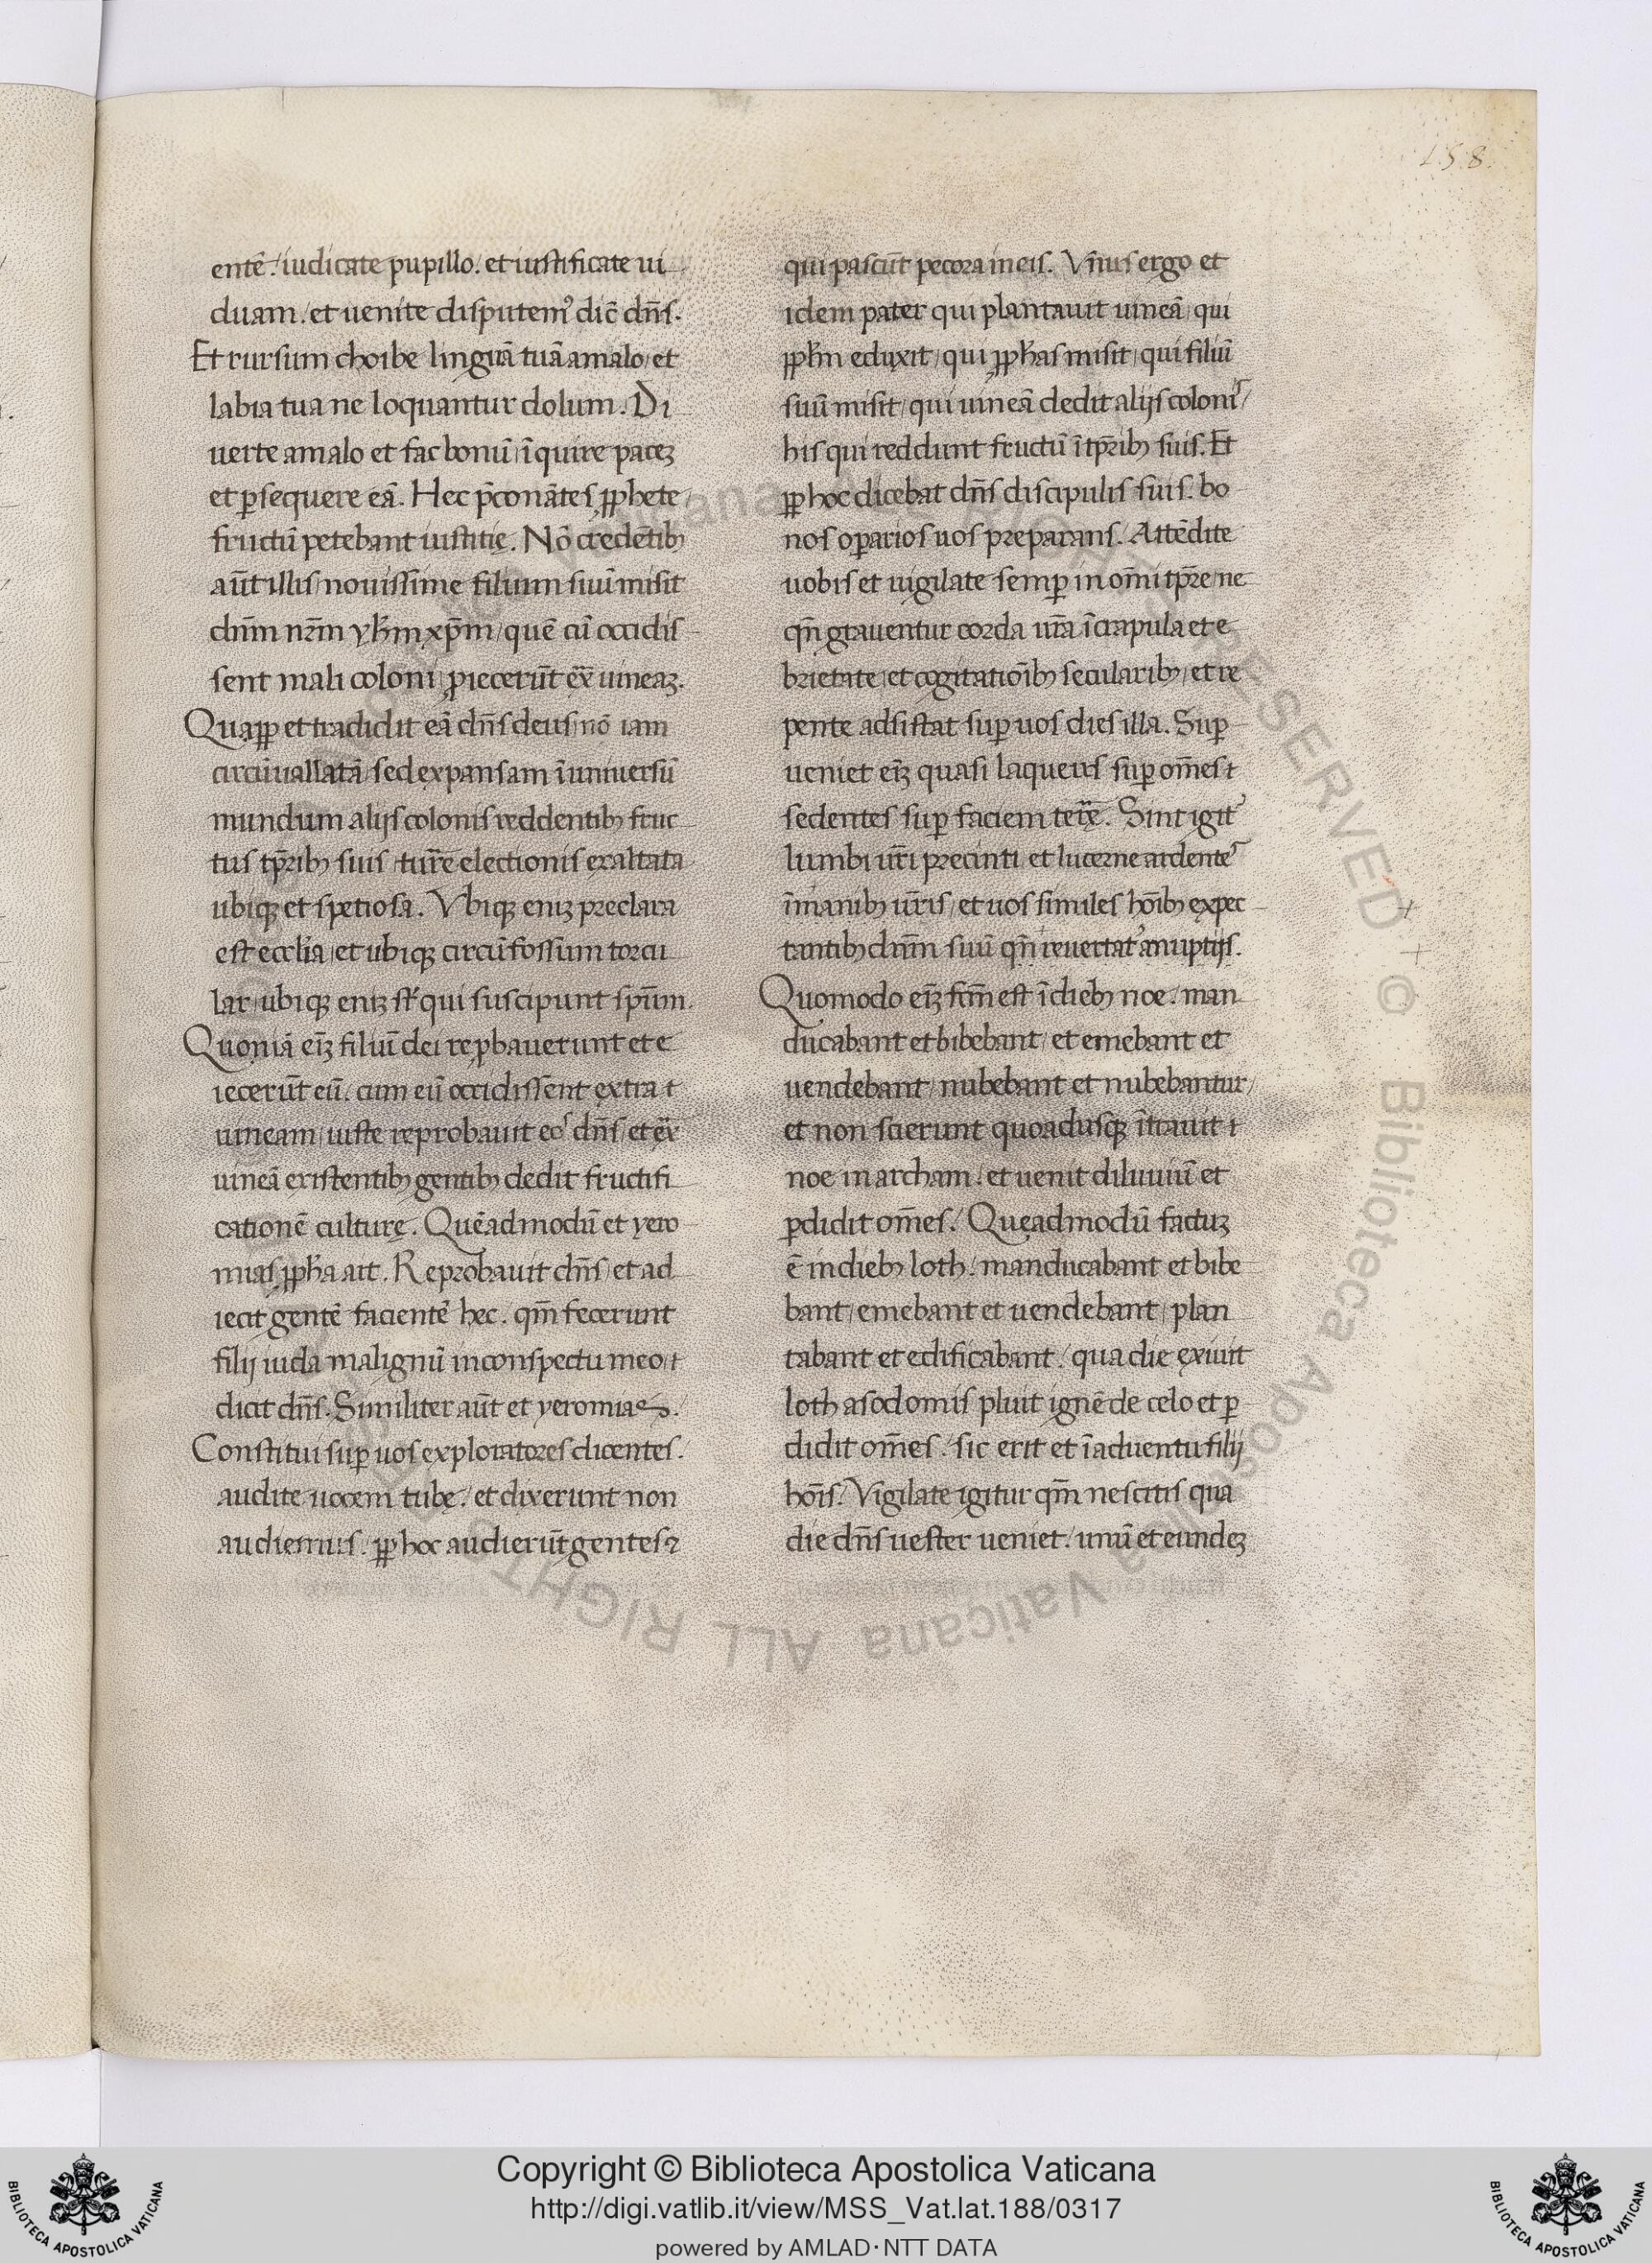 158.
entē. iudicate pupillo. et iustificate ui
duam. et uenite disputem᾽ dic̄ dn̄s.
Et rursum choibe linguā tuā a malo et
labia tua ne loquantur dolum. Di
uerte a malo et fac bonū ī quire paceꝫ
et ꝑsequere eā. Hec p̄conātes ꝓphete
fructū petebant iustitię. Nō credētibꝫ
aūt illis nouissime filium suū misit
dn̄m nr̄m yħm xp̄m quē cū occidis
sent mali coloni ꝓiecerūt ex̄ uineaꝫ.
Quaꝓp et tradidit eā dn̄s deus nō iam
circūuallatā sed expansam ī uniuersū
mundum alijs colonis reddentibꝫ fruc
tus tp̄ribꝫ suis turre electionis exaltata
ubiqꝫ et spetiosa. Vbiqꝫ eniꝫ preclara
est ecclia et ubiqꝫ circū fossum torcu
lar ubiqꝫ eniꝫ st᾽ qui suscipunt spūm.
Quoniā eīꝫ filiū dei reꝓbauerunt et e
iecerūt eū. cum eū occidissent extra
uineam iuste reprobauit eo᾽ dn̄s et ex̄
uineā existentibꝫ gentibꝫ dedit fructifi
cationē culturę. Quēadmodū et yero
mias ꝓpħa ait. Reprobauit dn̄s et ad
iecit gentē facientē hec. qm̄ fecerunt
filij iuda malignū in conspectu meo
dicit dn̄s. Similiter aūt et yeromias.
Constitui suꝑ uos exploratores dicentes.
audite uocem tubę. et dixerunt non
audiemus. ꝓp hoc audierūt gentes
qui pascūt pecora in eis. Vn̄us ergo et
idem pater qui plantauit uineā qui
pp̄lm eduxit qui ꝓpħas misit qui filiū
suū misit qui uineā dedit alijs coloni᾽
his qui reddunt fructū ī tp̄ribꝫ suis. Et
ꝓp hoc dicebat dn̄s discipulis suis. bo
nos oꝑarios uos preparans. Attēdite
uobis et uigilate semꝑ in om̄i tp̄re ne
qn̄ grauentur corda ur̄a ī crapula et e
brietate et cogitatiōibꝫ secularibꝫ et re
pente adsistat suꝑ uos dies illa. Suꝑ
ueniet eīꝫ quasi laqueus suꝑ om̄es
sedentes suꝑ faciem terrę. Sint igit᾽
lumbi ur̄i precinti et lucerne ardente᾽
ī manibꝫ ur̄is et uos similes hoīibꝫ expec
tantibꝫ dn̄m suū qn̄ reuertat᾽ a nuptijs.
Quomodo eīꝫ fcm̄ est ī diebꝫ noe. man
ducabant et bibebant et emebant et
uendebant nubebant et nubebantur
et non scierunt quoadusqꝫ ītrauit
noe in archam. et uenit diluuiū et
ꝑdidit om̄es. Queadmodū factuꝫ
ē in diebꝫ loth. manducabant et bibe
bant emebant et uendebant plan
tabant et edificabant. qua die exiuit
loth a sodomis pluit ignē de celo et ꝑ
didit om̄es. sic erit et ī aduentu filij
hoīs. Vigilate igitur qm̄ nescitis qua
die dn̄s uester ueniet. unū et eundeꝫ
Copyright © Biblioteca Apostolica Vaticana
http://digi.vatlib.it/view/MSS_Vat.lat.188/0317
powered by AMLAD·NTT DATA
BIBLIOTECA APOSTOLICA VATICANA
BIBLIOTECA APOSTOLICA VATICANA